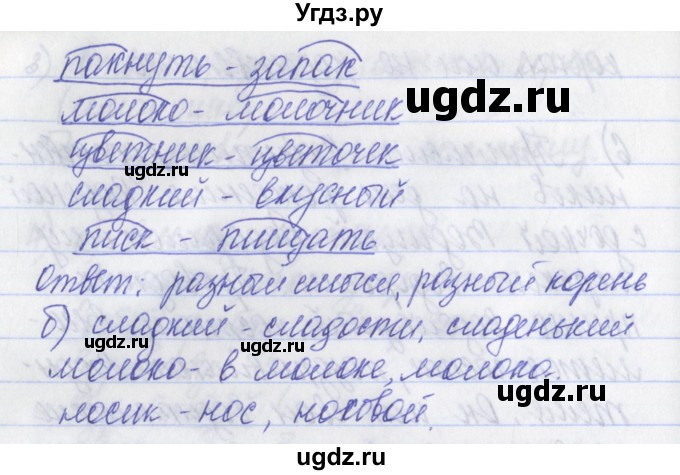 Угдз.ру
пакнуть - запак
молоко - молочник
ugdz.ru
цветник - цветочек
ugdz.ru
сладкий - вкусный
писк - пищать
Ответ: разный смысл, разный корень
ugdz.ru
б) сладкий - сладости, сладенький
ugdz.ru
молоко - в молоке, молоко.
носик - нос, носовой.
ugdz.ru